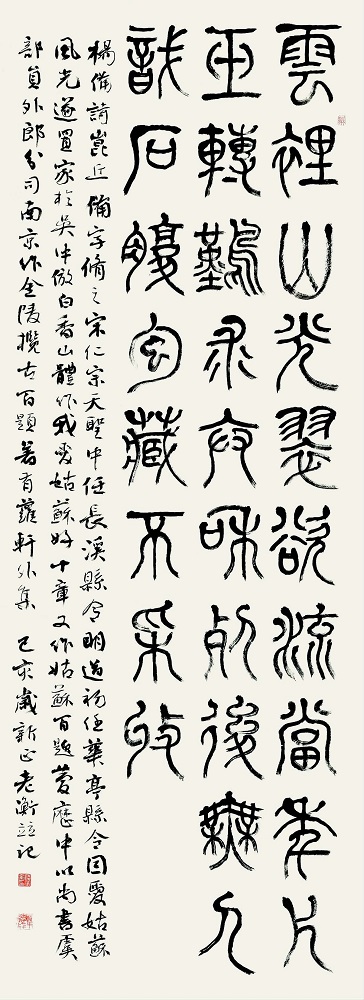 雲裡山光翠欲流當年片
玉轉難求卞和刖後無人
識石腹包藏不采收
楊備詩崑丘備字脩之宋仁宗天聖中任長溪縣令明道初任華亭縣令因愛姑蘇
風光遂置家於吳中倣白香山體作我愛姑蘇好十章又作姑蘇百題慶曆中以尚書虞
部員外郎分司南京作金陵攬古百題著有蘿軒外集 己亥歲新正老衡並記